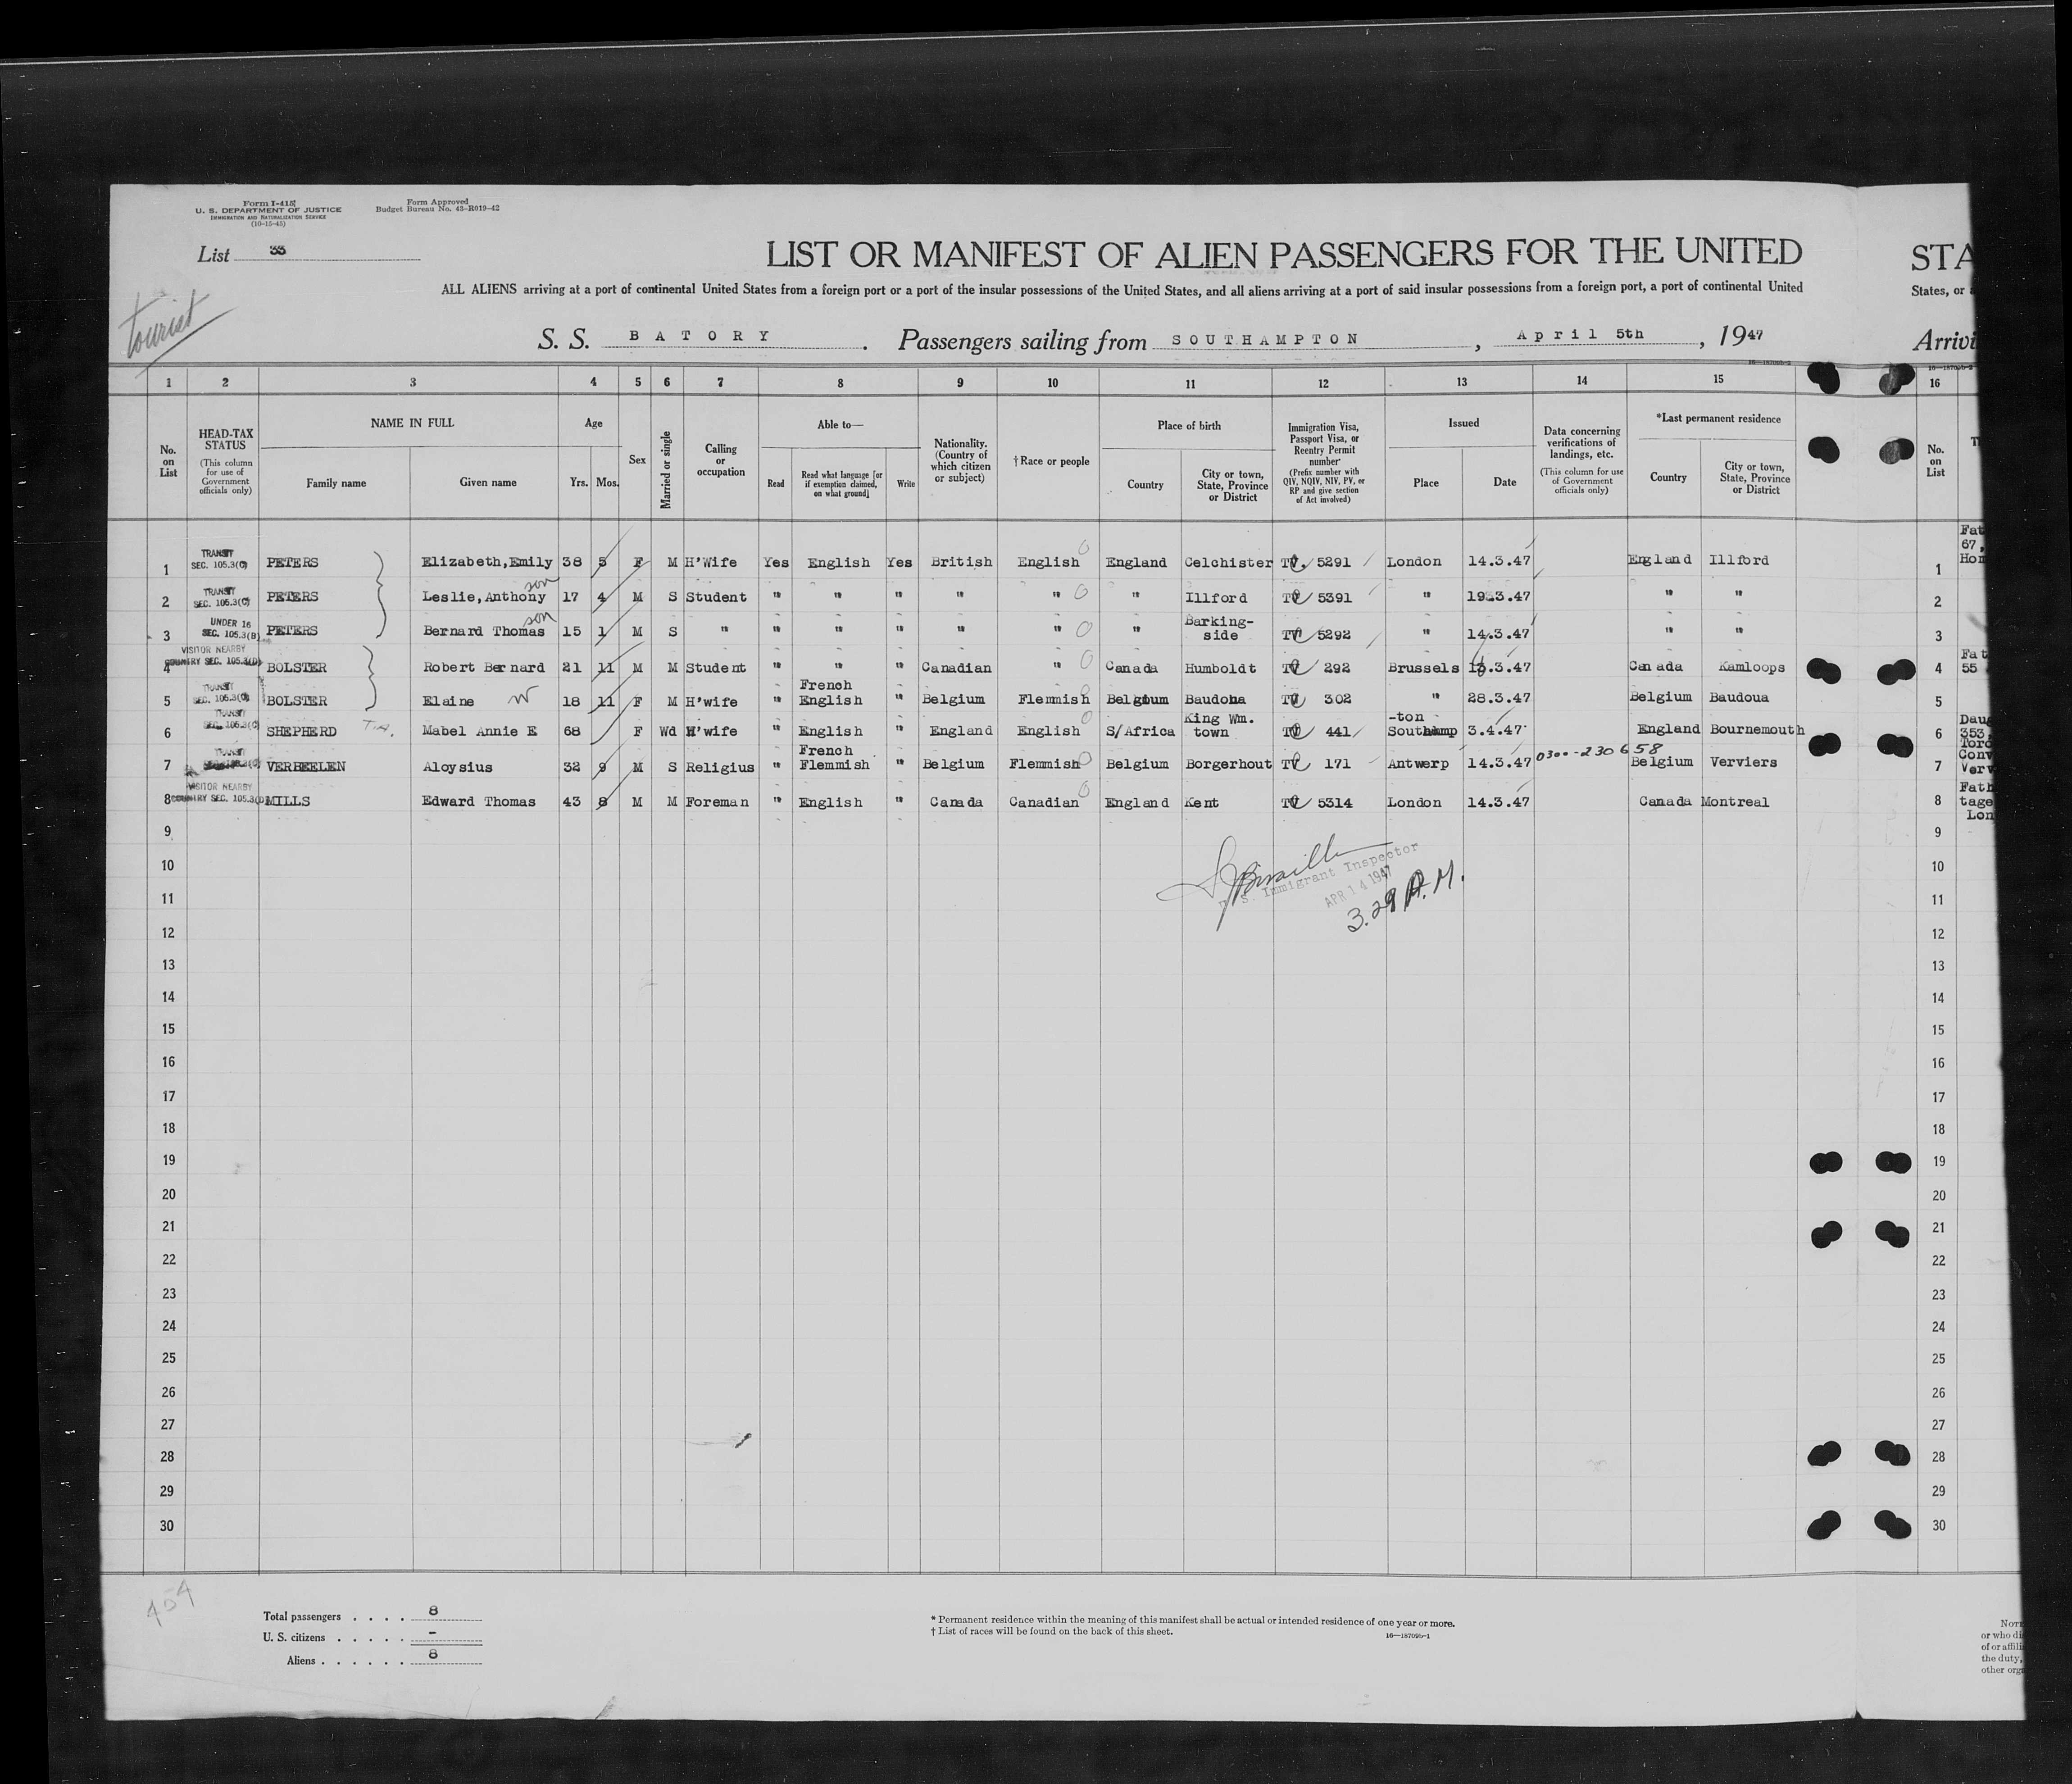 Form I-415
U. S. DEPARTMENT OF JUSTICE
IMMIGRATION AND NATURALIZATION SERVICE
(10-15-45)
Form Approved
Budget Bureau No. 43-R019-42
List 33
Tourist
LIST OR MANIFEST OF ALIEN PASSENGERS FOR THE UNITED
STA
ALL ALIENS arriving at a port of continental United States from a foreign port or a port of the insular possessions of the United States, and all aliens arriving at a port of said insular possessions from a foreign port, a port of continental United
States, or
S. S. BATORY. Passengers sailing from SOUTHAMPTON, April 5th, 1947
Arrivi
1 2 3 4 5 6 7 8 9 10 11 12 13 14 15 16
No. on List
HEAD-TAX STATUS (This column for use of Government officials only)
NAME IN FULL
Family name
Given name
Age
Yrs. Mos.
Sex
Married or single
Calling or occupation
Able to—
Read
Read what language [or if exemption claimed, on what ground]
Write
Nationality. (Country of which citizen or subject)
†Race or people
Place of birth
Country
City or town, State, Province or District
Immigration Visa, Passport Visa, or Reentry Permit number (Prefix number with QIV, NQIV, NIV, PV, or RP and give section of Act involved)
Issued
Place
Date
Data concerning verifications of landings, etc. (This column for use of Government officials only)
*Last permanent residence
Country
City or town, State, Province or District
No. on List
1 TRANSIT SEC. 105.3(C) PETERS Elizabeth,Emily 38 5 F M H'Wife Yes English Yes British English England Celchister TV. 5291 London 14.3.47 England Illford 1 Fat 67, Hom
2 TRANSIT SEC. 105.3(C) PETERS Leslie,Anthony son 17 4 M S Student " " " " " " Illford TV 5391 " 19.3.47 " " 2
3 UNDER 16 SEC. 105.3(B) PETERS Bernard Thomas son 15 1 M S " " " " " " " Barking-side TV 5292 " 14.3.47 " " 3
4 VISITOR NEARBY COUNTRY SEC. 105.3(D) BOLSTER Robert Bernard 21 11 M M Student " " " Canadian " Canada Humboldt TV 292 Brussels 3.47 Canada Kamloops 4 Fat 55
5 TRANSIT SEC. 105.3(C) BOLSTER Elaine W 18 11 F M H'wife " French English " Belgium Flemmish Belgium Baudoua TV 302 " 28.3.47 Belgium Baudoua 5
6 TRANSIT SEC. 105.3(C) SHEPHERD T.A. Mabel Annie E 68 F Wd H'wife " English " England English S/Africa King Wm. town TV 441 Southamp-ton 3.4.47 England Bournemouth 6 Daug 353, Toro
7 TRANSIT VERBEELEN Aloysius 32 9 M S Religius " French Flemmish " Belgium Flemmish Belgium Borgerhout TV 171 Antwerp 14.3.47 0300-230658 Belgium Verviers 7 Conv Verv
8 VISITOR NEARBY COUNTRY SEC. 105.3(D) MILLS Edward Thomas 43 8 M M Foreman " English " Canada Canadian England Kent TV 5314 London 14.3.47 Canada Montreal 8 Fath tage Lon
9 9
10 10
11 11
U. S. Immigrant Inspector
APR 14 1947
3.29 P.M.
12 12
13 13
14 14
15 15
16 16
17 17
18 18
19 19
20 20
21 21
22 22
23 23
24 24
25 25
26 26
27 27
28 28
29 29
30 30
Total passengers . . . . 8
U. S. citizens . . . . . -
Aliens . . . . . . 8
* Permanent residence within the meaning of this manifest shall be actual or intended residence of one year or more.
† List of races will be found on the back of this sheet.
16—18709b-1
NOTE
or who di
of or affili
the duty,
other orga